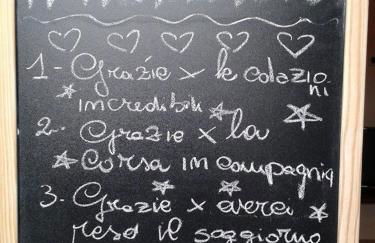 1- Grazie x le colazio
ni
incredibili
2- Grazie x la
corsa in compagnia
3- Grazie x averci
reso il soggiorno